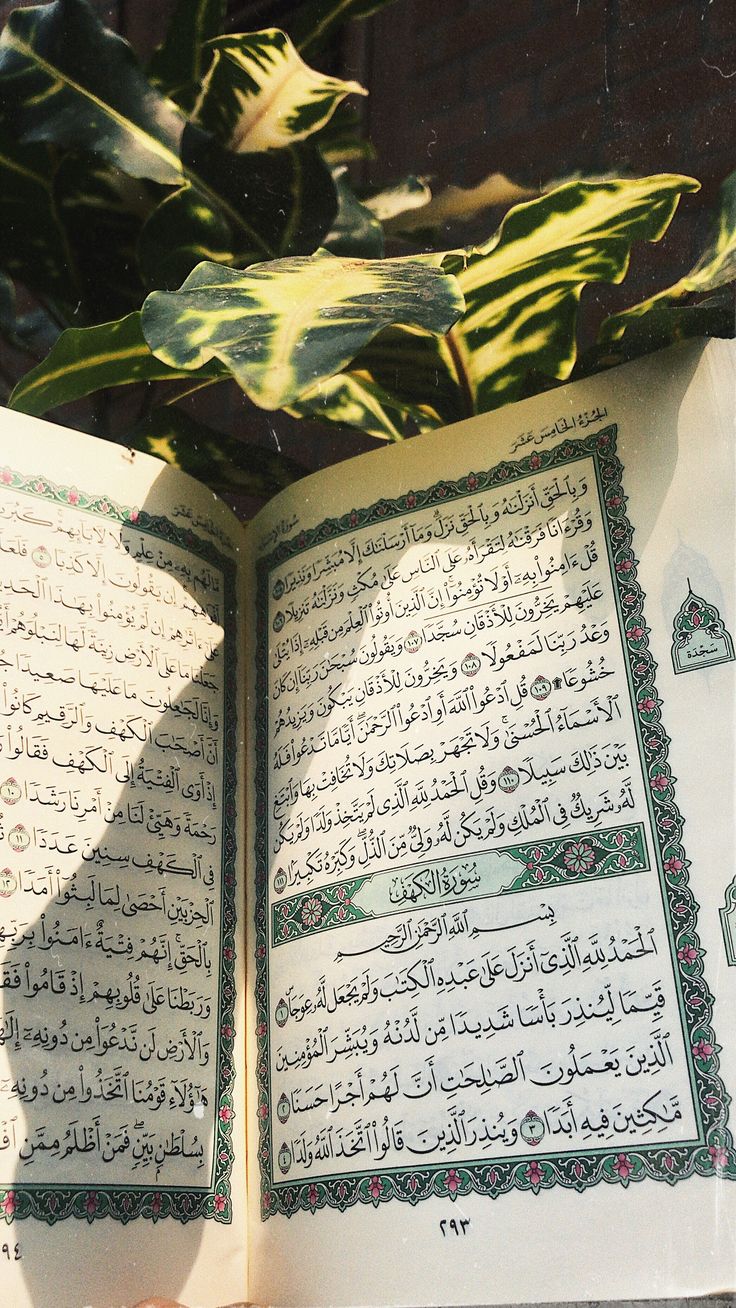 الجُزْءُ الخَامِسَ عَشَرَ
وَبِٱلْحَقِّ أَنزَلْنَٰهُ وَبِٱلْحَقِّ نَزَلَۗ وَمَآ أَرْسَلْنَٰكَ إِلَّا مُبَشِّرًا وَنَذِيرًا ١٠٥
وَقُرْءَانًا فَرَقْنَٰهُ لِتَقْرَأَهُۥ عَلَى ٱلنَّاسِ عَلَىٰ مُكْثٍ وَنَزَّلْنَٰهُ تَنزِيلًا ١٠٦
قُلْ ءَامِنُوا۟ بِهِۦٓ أَوْ لَا تُؤْمِنُوٓا۟ۚ إِنَّ ٱلَّذِينَ أُوتُوا۟ ٱلْعِلْمَ مِن قَبْلِهِۦٓ إِذَا يُتْلَىٰ
عَلَيْهِمْ يَخِرُّونَ لِلْأَذْقَانِ سُجَّدًا ١٠٧ وَيَقُولُونَ سُبْحَٰنَ رَبِّنَآ إِن كَانَ
وَعْدُ رَبِّنَا لَمَفْعُولًا ١٠٨ وَيَخِرُّونَ لِلْأَذْقَانِ يَبْكُونَ وَيَزِيدُهُمْ
خُشُوعًا ۩ ١٠٩ قُلِ ٱدْعُوا۟ ٱللَّهَ أَوِ ٱدْعُوا۟ ٱلرَّحْمَٰنَۖ أَيًّا مَّا تَدْعُوا۟ فَلَهُ
ٱلْأَسْمَآءُ ٱلْحُسْنَىٰۚ وَلَا تَجْهَرْ بِصَلَاتِكَ وَلَا تُخَافِتْ بِهَا وَٱبْتَغِ
بَيْنَ ذَٰلِكَ سَبِيلًا ١١٠ وَقُلِ ٱلْحَمْدُ لِلَّهِ ٱلَّذِى لَمْ يَتَّخِذْ وَلَدًا وَلَمْ يَكُن
لَّهُۥ شَرِيكٌ فِى ٱلْمُلْكِ وَلَمْ يَكُن لَّهُۥ وَلِىٌّ مِّنَ ٱلذُّلِّۖ وَكَبِّرْهُ تَكْبِيرًا ١١١
سُورَةُ الكَهْفِ
بِسْمِ ٱللَّهِ ٱلرَّحْمَٰنِ ٱلرَّحِيمِ
ٱلْحَمْدُ لِلَّهِ ٱلَّذِىٓ أَنزَلَ عَلَىٰ عَبْدِهِ ٱلْكِتَٰبَ وَلَمْ يَجْعَل لَّهُۥ عِوَجَاۜ ١
قَيِّمًا لِّيُنذِرَ بَأْسًا شَدِيدًا مِّن لَّدُنْهُ وَيُبَشِّرَ ٱلْمُؤْمِنِينَ
ٱلَّذِينَ يَعْمَلُونَ ٱلصَّٰلِحَٰتِ أَنَّ لَهُمْ أَجْرًا حَسَنًا ٢
مَّٰكِثِينَ فِيهِ أَبَدًا ٣ وَيُنذِرَ ٱلَّذِينَ قَالُوا۟ ٱتَّخَذَ ٱللَّهُ وَلَدًا ٤
٢٩٣
سَجْدَة
مَّا لَهُم بِهِۦ مِنْ عِلْمٍ وَلَا لِءَابَآئِهِمْۚ كَبُرَتْ
أَفْوَٰهِهِمْۚ إِن يَقُولُونَ إِلَّا كَذِبًا ٥ فَلَعَلَّ
عَلَىٰٓ ءَاثَٰرِهِمْ إِن لَّمْ يُؤْمِنُوا۟ بِهَٰذَا ٱلْحَدِيثِ
جَعَلْنَا مَا عَلَى ٱلْأَرْضِ زِينَةً لَّهَا لِنَبْلُوَهُمْ
وَإِنَّا لَجَٰعِلُونَ مَا عَلَيْهَا صَعِيدًا
أَنَّ أَصْحَٰبَ ٱلْكَهْفِ وَٱلرَّقِيمِ كَانُوا۟
إِذْ أَوَى ٱلْفِتْيَةُ إِلَى ٱلْكَهْفِ فَقَالُوا۟
رَحْمَةً وَهَيِّئْ لَنَا مِنْ أَمْرِنَا رَشَدًا ١٠
فِى ٱلْكَهْفِ سِنِينَ عَدَدًا ١١
ٱلْحِزْبَيْنِ أَحْصَىٰ لِمَا لَبِثُوٓا۟ أَمَدًا ١٢
بِٱلْحَقِّۚ إِنَّهُمْ فِتْيَةٌ ءَامَنُوا۟ بِرَبِّهِمْ
وَرَبَطْنَا عَلَىٰ قُلُوبِهِمْ إِذْ قَامُوا۟
وَٱلْأَرْضِ لَن نَّدْعُوَا۟ مِن دُونِهِۦٓ إِلَٰهًا
هَٰٓؤُلَآءِ قَوْمُنَا ٱتَّخَذُوا۟ مِن دُونِهِۦٓ
بِسُلْطَٰنٍۭ بَيِّنٍۖ فَمَنْ أَظْلَمُ مِمَّنِ
٩٤